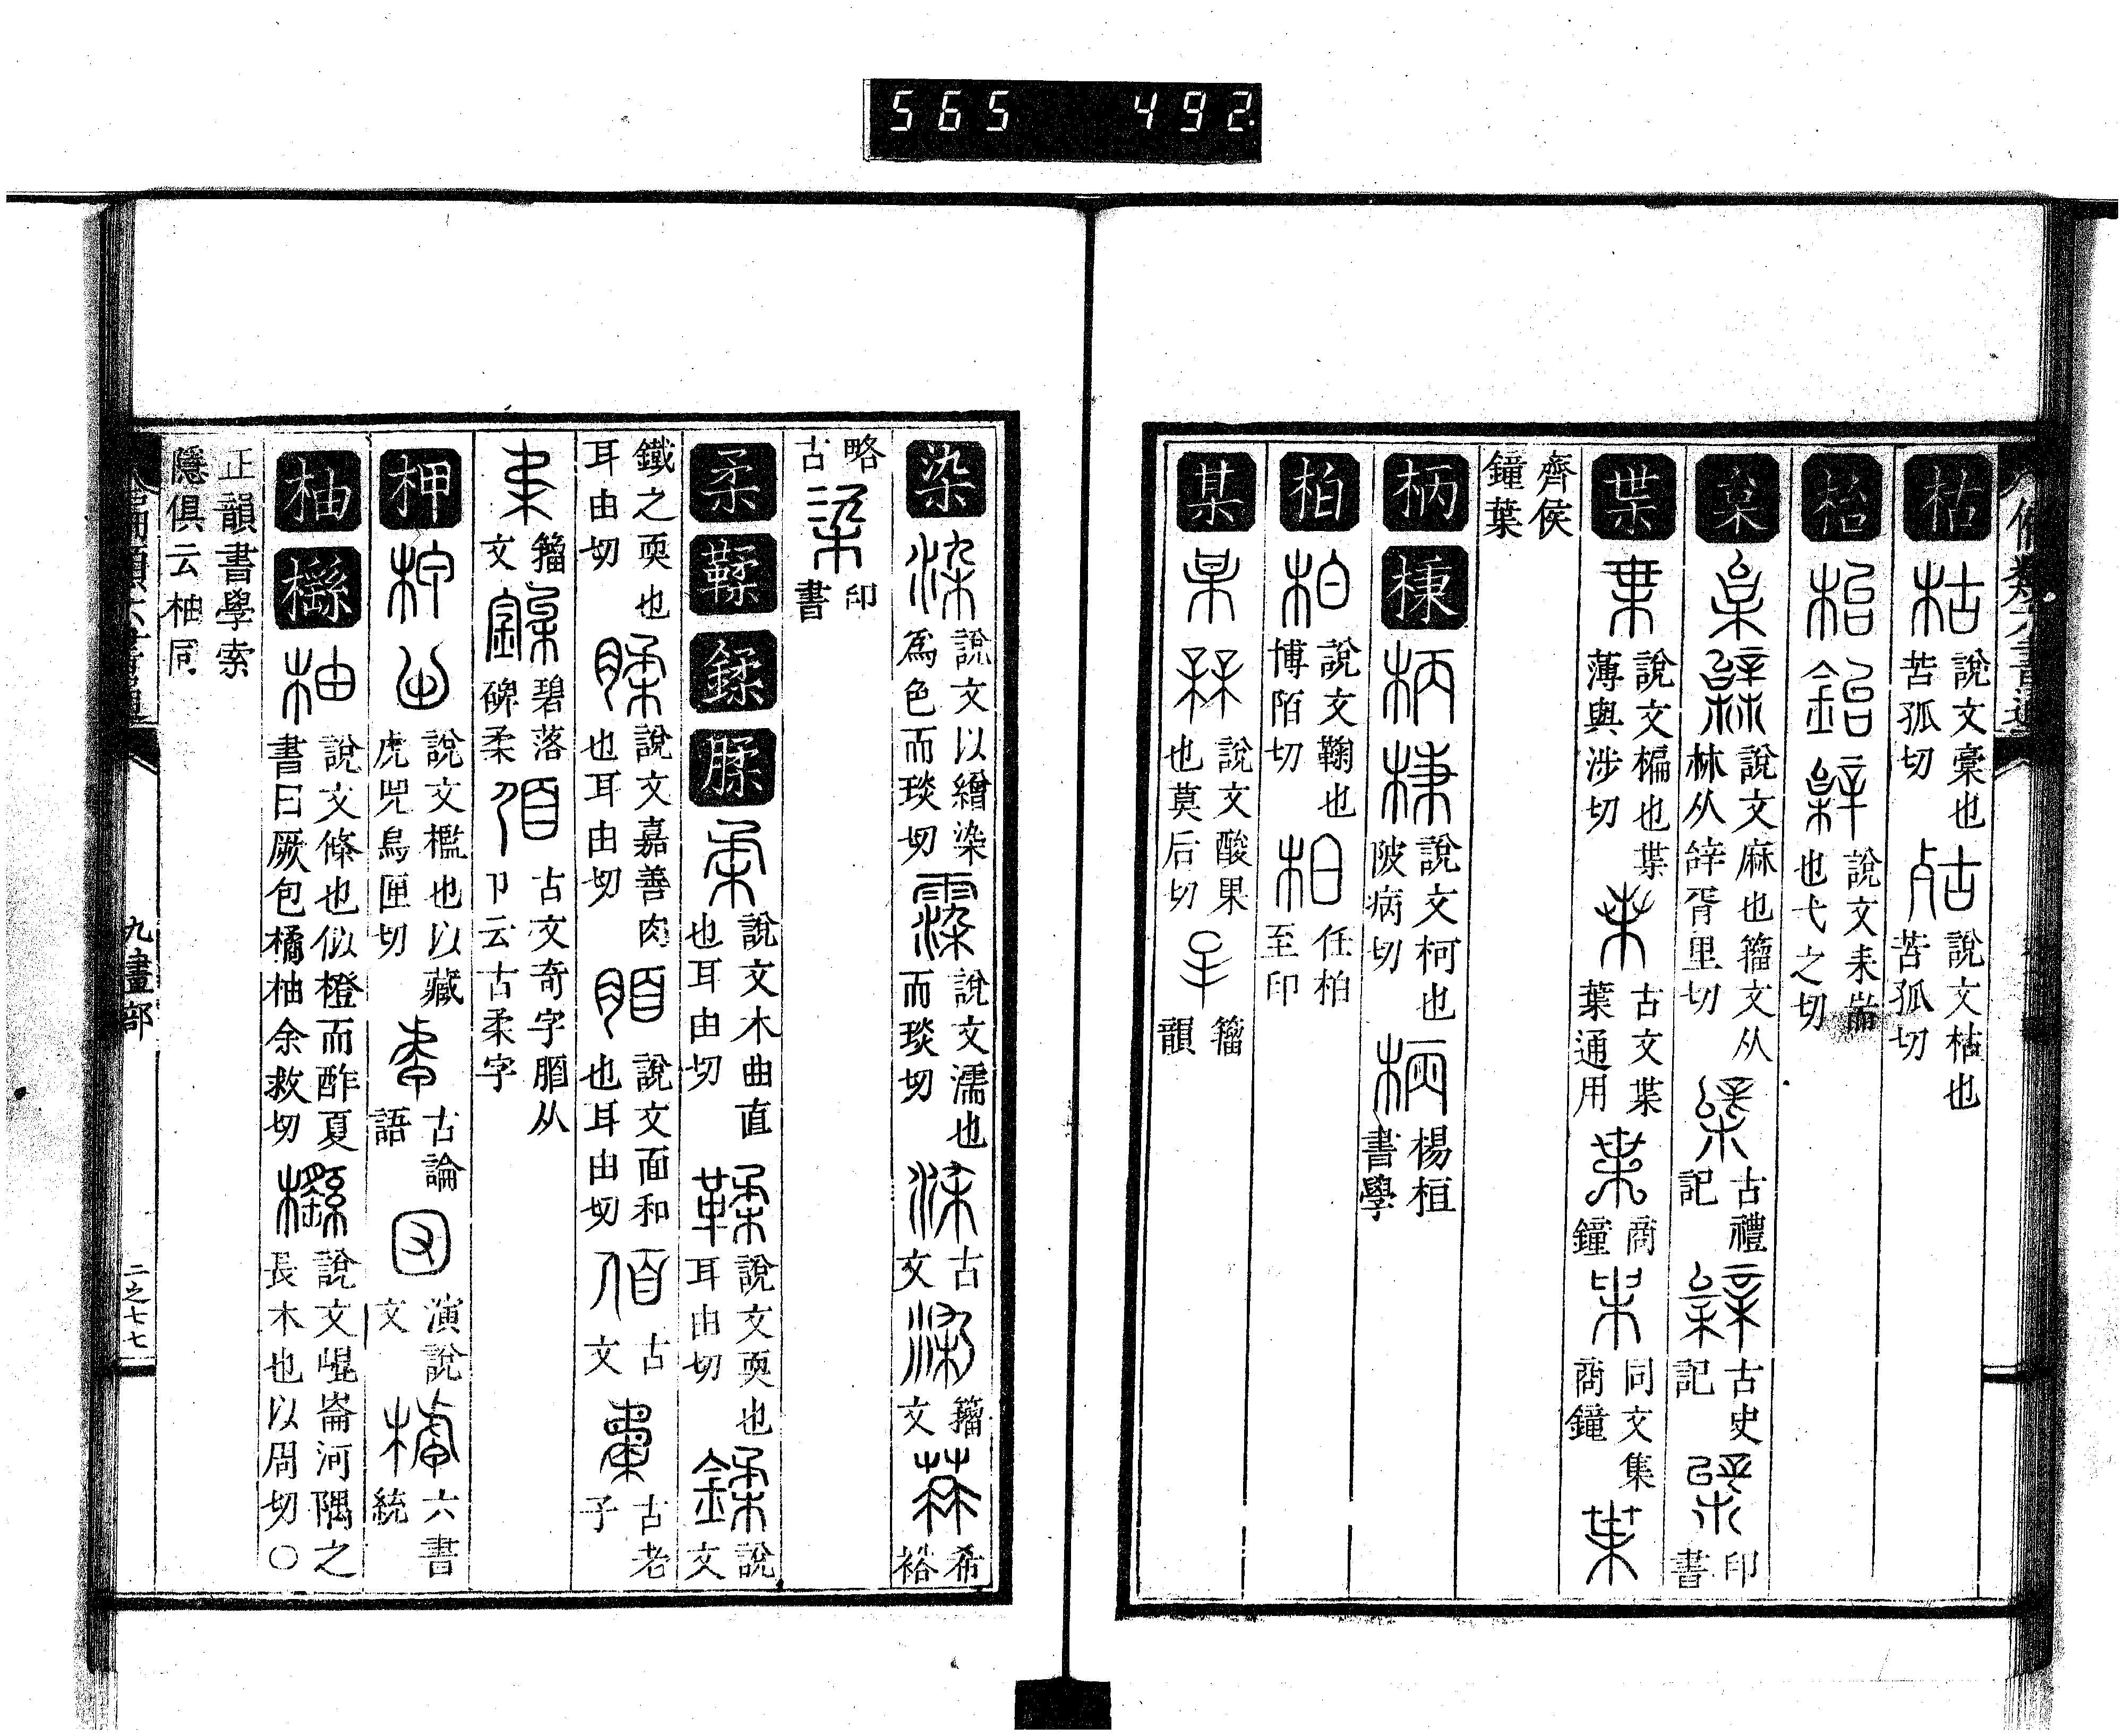 565 492
枯 說文槀也苦孤切 說文枯也苦孤切
枱 說文耒耑也弋之切
枲 說文麻也籀文从𣏟从辝胥里切 古禮記 古史記 印書
枼 說文楄也枼薄與涉切 古文枼葉通用 商鐘 同文集商鐘
齊侯鐘葉
柄棅 說文柯也陂病切 楊桓書學
柏 說文鞠也博陌切 任柏至印
某 說文酸果也莫后切 籀韻
染 說文以繒染為色而琰切 說文濡也而琰切 古文 籀文 希裕
略古 印書
柔鞣鍒腬 說文木曲直也耳由切 說文耎也耳由切 說文
鐵之耎也耳由切 說文嘉善肉也耳由切 說文面和也耳由切 古文 古老子
籀文 碧落碑柔 古文奇字脜从卩云古柔字
柙 說文檻也以藏虎兕烏匣切 古論語 演說文 六書統
柚櫾 說文條也似橙而酢夏書曰厥包橘柚余救切 說文崐崙河隅之長木也以周切〇
正韻書學索隱俱云柚同
九畫部
二之七七